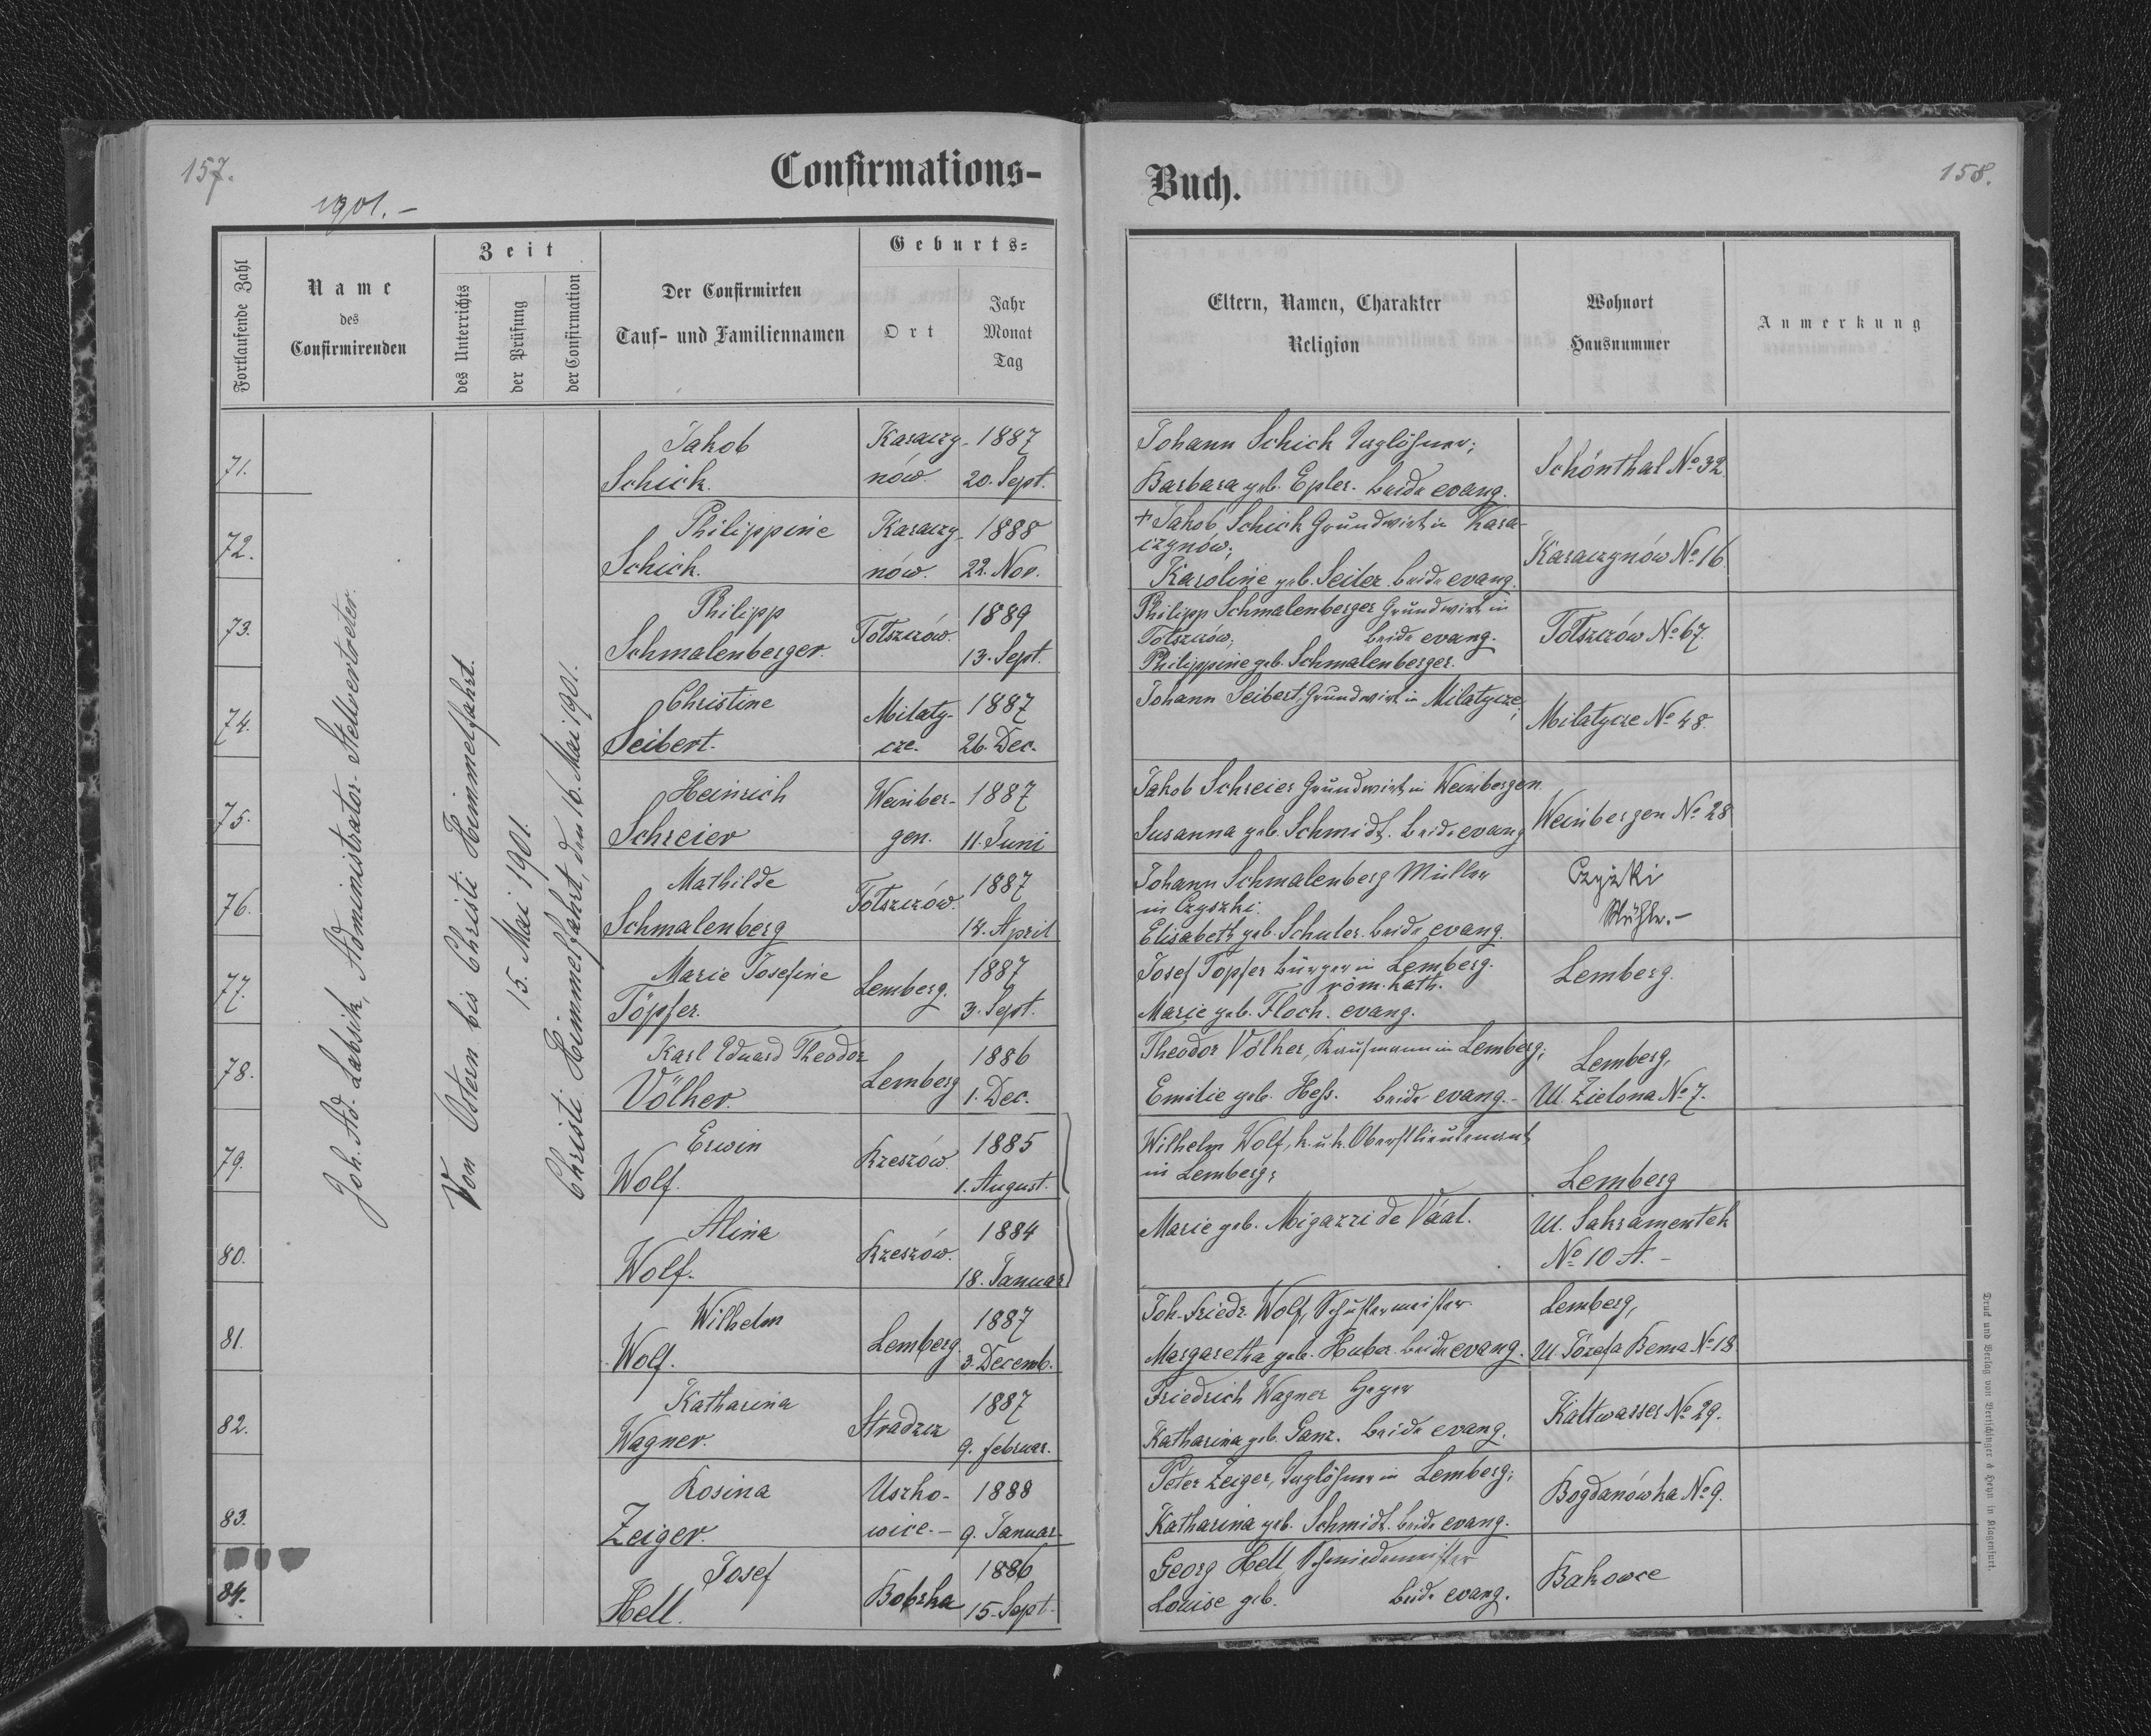 157.
1901.–
Confirmations-
Fortlaufende Zahl
Name
des
Confirmirenden
Zeit
des Unterrichts
der Prüfung
der Confirmation
Der Confirmirten
Tauf- und Familiennamen
Geburts-
Ort
Jahr
Monat
Tag
Joh. Ad. Labsik, Administrator-Stellvertreter.
Von Ostern bis Christi Himmelfahrt.
15. Mai 1901.
Christi Himmelfahrt, den 16. Mai 1901.
71.
Jakob
Schick.
Karaczy-
nów.
1887
20. Sept.
72.
Philippine
Schick.
Karaczy-
nów.
1888
22. Nov.
73.
Philipp
Schmalenberger.
Tolszczów.
1889
13. Sept.
74.
Christine
Seibert.
Milaty-
cze.
1887
26. Dec.
75.
Heinrich
Schreier
Weinber-
gen.
1887
11. Juni
76.
Mathilde
Schmalenberg
Tolszczów.
1887
14. April
77.
Marie Josefine
Töpfer.
Lemberg.
1887
3. Sept.
78.
Karl Eduard Theodor
Völker.
Lemberg
1886
1. Dec.
79.
Erwin
Wolf.
Rzeszów.
1885
1. August.
80.
Alina
Wolf.
Rzeszów.
1884
18. Januar
81.
Wilhelm
Wolf.
Lemberg.
1887
3. Decemb.
82.
Katharina
Wagner.
Stradcz
1887
9. Februar.
83.
Rosina
Zeiger.
Uszko-
wice.–
1888
9. Januar
84.
Josef
Hell.
Bobrka
1886
15. Sept.
Buch.
158.
Eltern, Namen, Charakter
Religion
Wohnort
Hausnummer
Anmerkung
Johann Schick Taglöhner;
Barbara geb. Epler. beide evang.
Schönthal No 32.
† Jakob Schick Grundwirt in Kara-
czynów;
Karoline geb. Seiler beide evang.
Karaczynów No 16.
Philipp Schmalenberger Grundwirt in
Tolszczów; beide evang.
Philippine geb. Schmalenberger.
Tolszczów No 67.
Johann Seibert, Grundwirt in Milatycze;
Milatycze No 48.
Jakob Schreier Grundwirt in Weinbergen
Susanna geb. Schmidt. beide evang
Weinbergen No 28
Johann Schmalenberg Müller
in Czyszki.
Elisabeth geb. Schuler. beide evang.
Czyżki
Mühle.–
Josef Töpfer Bürger in Lemberg.
röm. kath.
Marie geb. Floch. evang.
Lemberg.
Theodor Völker, Kaufmann in Lemberg;
Emilie geb. Heß. beide evang.–
Lemberg,
Ul. Zielona No 7.
Wilhelm Wolf, k. u. k. Oberstlieutenant
in Lemberg;
Marie geb. Migazzi de Váal.
Lemberg
Ul. Sakramentek
No 10 A.–
Joh. Friedr. Wolf, Schustermeister.
Margaretha geb. Huber. beide evang.
Lemberg,
Ul Józefa Bema No 18
Friedrich Wagner Heger
Katharina geb. Ganz. beide evang.
Kaltwasser No 29.
Peter Zeiger, Taglöhner in Lemberg;
Katharina geb. Schmidt. beide evang.
Bogdanówka No 9.
Georg Hell, Schmiedemeister
Louise geb. beide evang.
Bakowce
Druck und Verlag von Bertschinger & Heyn in Klagenfurt.